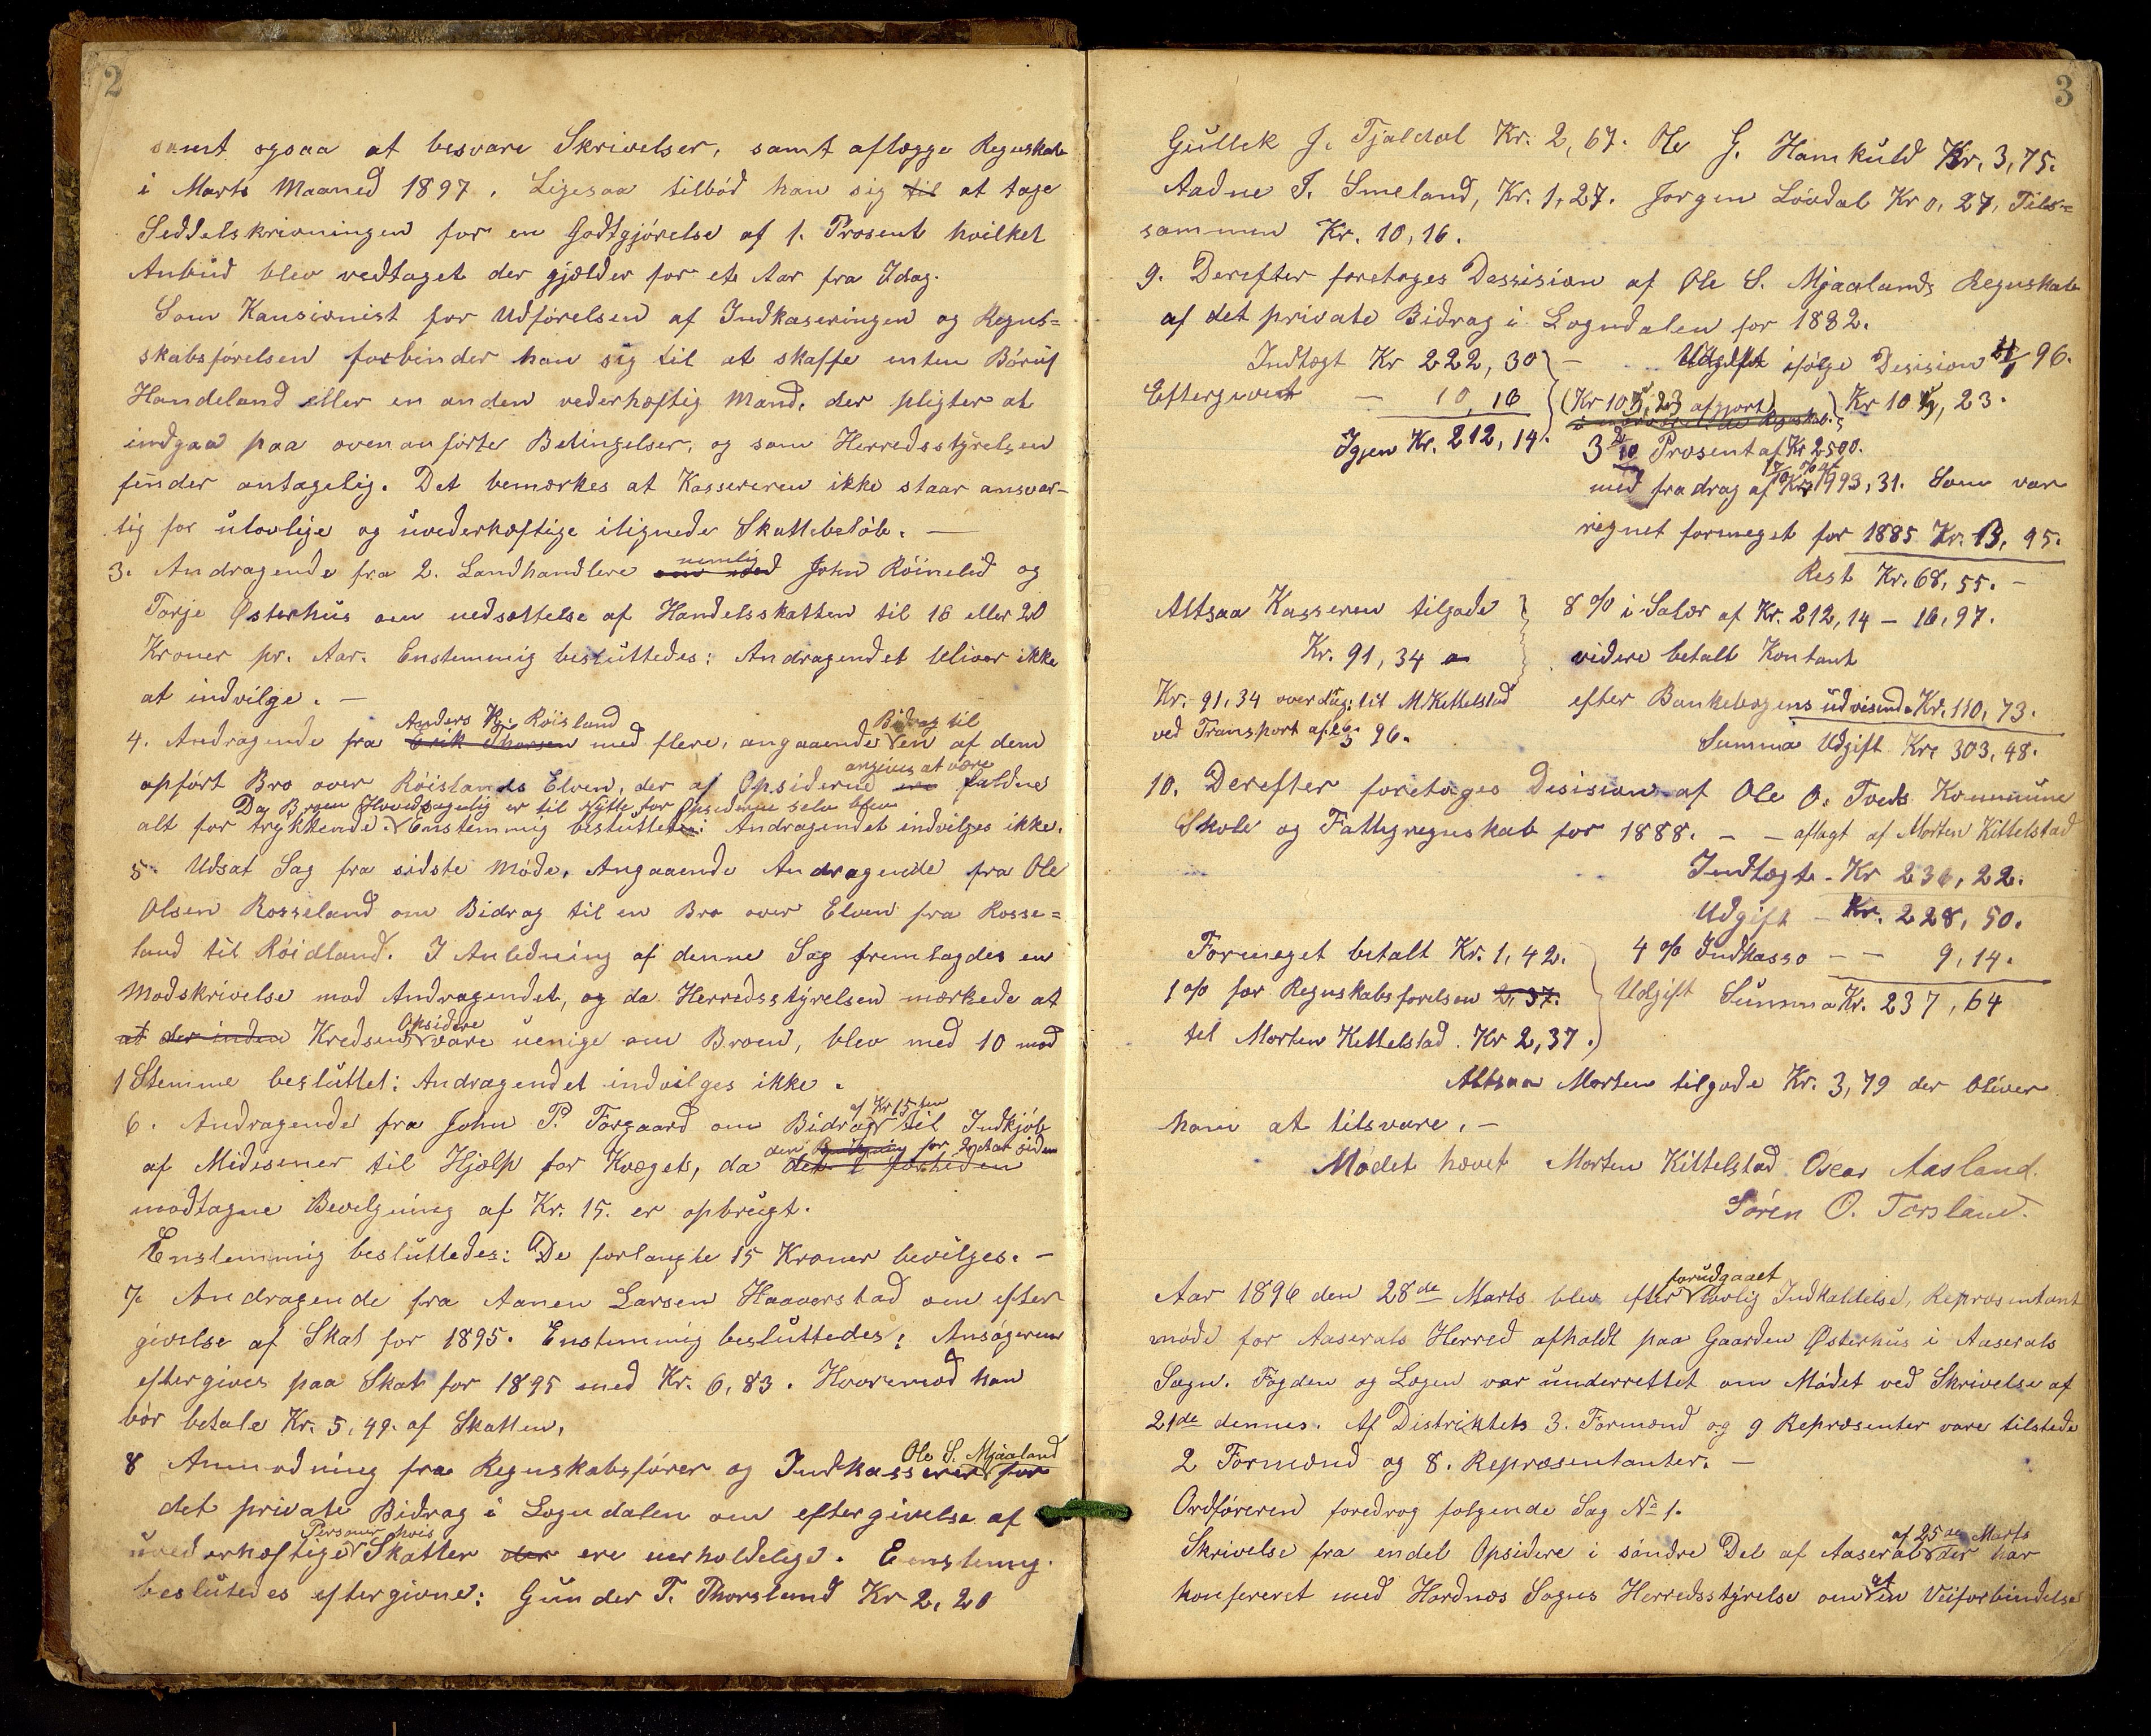 2
samt ogsaa at besvare Skrivelser, samt aflægge Regnskab
i Marts Maaned 1897. Ligesaa tilbød han sig til at tage
Seddelskrivningen for en Godtgjørelse af 1. Prosent hvilket
Anbud blev vedtaget der gjælder for et Aar fra Idag.
Som Kausionist for Udførelsen af Indkaseringen og Regns=
skabsførelsen forbinder han sig til at skaffe enten Børuf
Handeland eller en anden vederhæftig Mand, der pligter at
indgaa paa ovenanførte Betingelser, og som Herredsstyrelsen
finder antagelig. Det bemærkes at Kassereren ikke staar ansvar-
lig for ulovlige og uvederhæftige ilignede Skattebeløb. —
nemlig
3. Andragende fra 2. Landhandlere John Røinelid og
Torje Østerhus om nedsættelse af Handelsskatten til 16 eller 20
Kroner pr. Aar. Enstemmig besluttedes: Andragendet bliver ikke
at indvilge. —
Anders K. Røisland Bidrag til
4. Andragende fra med flere, angaaende en af dem
angives at være
opført Bro over Røislands Elven, der af Opsiderne faldne
Da Broen Hovedsagelig er til Nytte for Opsiderne selv blev
alt for trykkende. Enstemmig besluttet: Andragendet indvilges ikke.
5. Udsat Sag fra sidste Møde, Angaaende Andragende fra Ole
Olsen Rosseland om Bidrag til en Bro over Elven fra Rosse=
land til Røidland. I Anledning af denne Sag fremlagdes en
Modskrivelse mod Andragendet, og da Herredsstyrelsen mærkede at
Opsidere
at der inden Kredsens vare uenige om Broen, blev med 10 mod
1 Stemme besluttet: Andragendet indvilges ikke.
af Kr 15
6. Andragende fra John P. Forgaard om Bidrag til Indkjøb
den for 2 Aar siden
af Midesiner til Hjælp for Kvæget, da det i fortiden
modtagne Bevilgning af Kr. 15. er opbrugt.
Enstemmig besluttedes: De forlangte 15 Kroner bevilges. —
7. Andragende fra Aanen Larsen Haaverstad om efter
givelse af Skat for 1895. Enstemmig besluttedes: Ansøgeren
eftergives paa Skat for 1895 med Kr. 6,83. Hvoremod han
bør betale Kr. 5,49. af Skatten.
Ole S. Mjaaland
8 Anmodning fra Regnskabsfører og Indkasserer for
det private Bidrag i Logndalen om eftergivelse af
Personer hvis
uvederhæftige Skatter der ere uerholdelige. Enstemg.
beslutedes eftergivne: Gunder T. Thorsland Kr 2,20
3
Gullek J. Tjaldal Kr. 2,67. Ole G. Hamkuld Kr. 3,75.
Aadne T. Smeland, Kr. 1,27. Jørgen Løvdal Kr 0,27, Tils=
sammen Kr. 10,16.
9. Derefter foretoges Dessision af Ole S. Mjaalands Regnskab
af det private Bidrag i Logndalen for 1882.
Indtægt Kr 222,30 — Udgift ifølge Desision 96.
Eftergivent — 10,16 Kr 10 ,23.
Igjen Kr. 212,14. 3 2/10 Prosent af Kr 2500.
med fradrag af Kr 1993,31. Som var
regnet formeget for 1885 Kr. 13,95.
Rest Kr. 68,55. —
Altsaa Kasseren tilgode 8 % i Salær af Kr. 212,14 — 16,97.
Kr. 91,34 videre betalt Kontant
Kr. 91,34 overdrag: til M Kittelstad efter Bankebogens udvisende Kr. 110,73.
ved Transport af 96. Summa Udgift Kr. 303,48.
10. Derefter foretoges Desision af Ole O. Tveds Kommune
Skole og Fattigregnskab for 1888. — — aflagt af Morten Kittelstad
Indtægt. Kr 236,22.
Udgift — Kr. 228,50.
Formeget betalt Kr. 1,42. 4 % Indkasso — — 9,14.
1 % for Regnskabsførelsen 2,37. Udgift Summa Kr. 237,64
til Morten Kittelstad. Kr 2,37.
Altsaa Morten tilgode Kr. 3,79 der bliver
ham at tilsvare. —
Mødet hævet Morten Kittelstad Oscar Aasland.
Søren O. Torsland.
forudgaaet
Aar 1896 den 28de Marts blev efter lovlig Indkaldelse, Repræsentant
møde for Aaserals Herred afholdt paa Gaarden Østerhus i Aaserals
Sogn. Fogden og Lægen var underrettet om Mødet ved Skrivelse af
21de dennes. Af Distriktets 3. Formænd og 9 Repræsenter vare tilstede
2 Formænd og 8. Repræsentanter. —
Ordføreren foredrog følgende Sag No 1.
af 25de Marts
Skrivelse fra endel Opsidere i søndre Del af Aaseral der har
at
konfereret med Hordnæs Sogns Herredsstyrelse om en Veiforbindelse